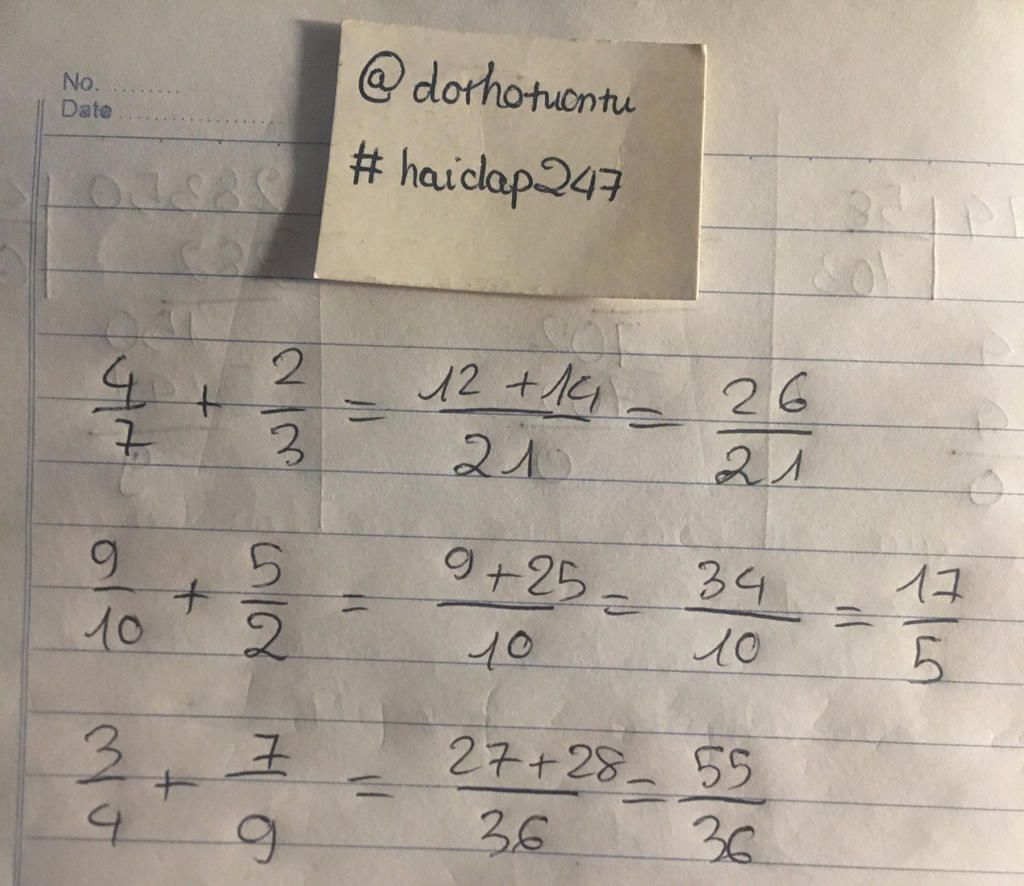 No. ........
Date ..................
@dorhotuontu
#haidap247
4/7 + 2/3 = 12 + 14/21 = 26/21
9/10 + 5/2 = 9 + 25/10 = 34/10 = 17/5
3/4 + 7/9 = 27 + 28/36 = 55/36